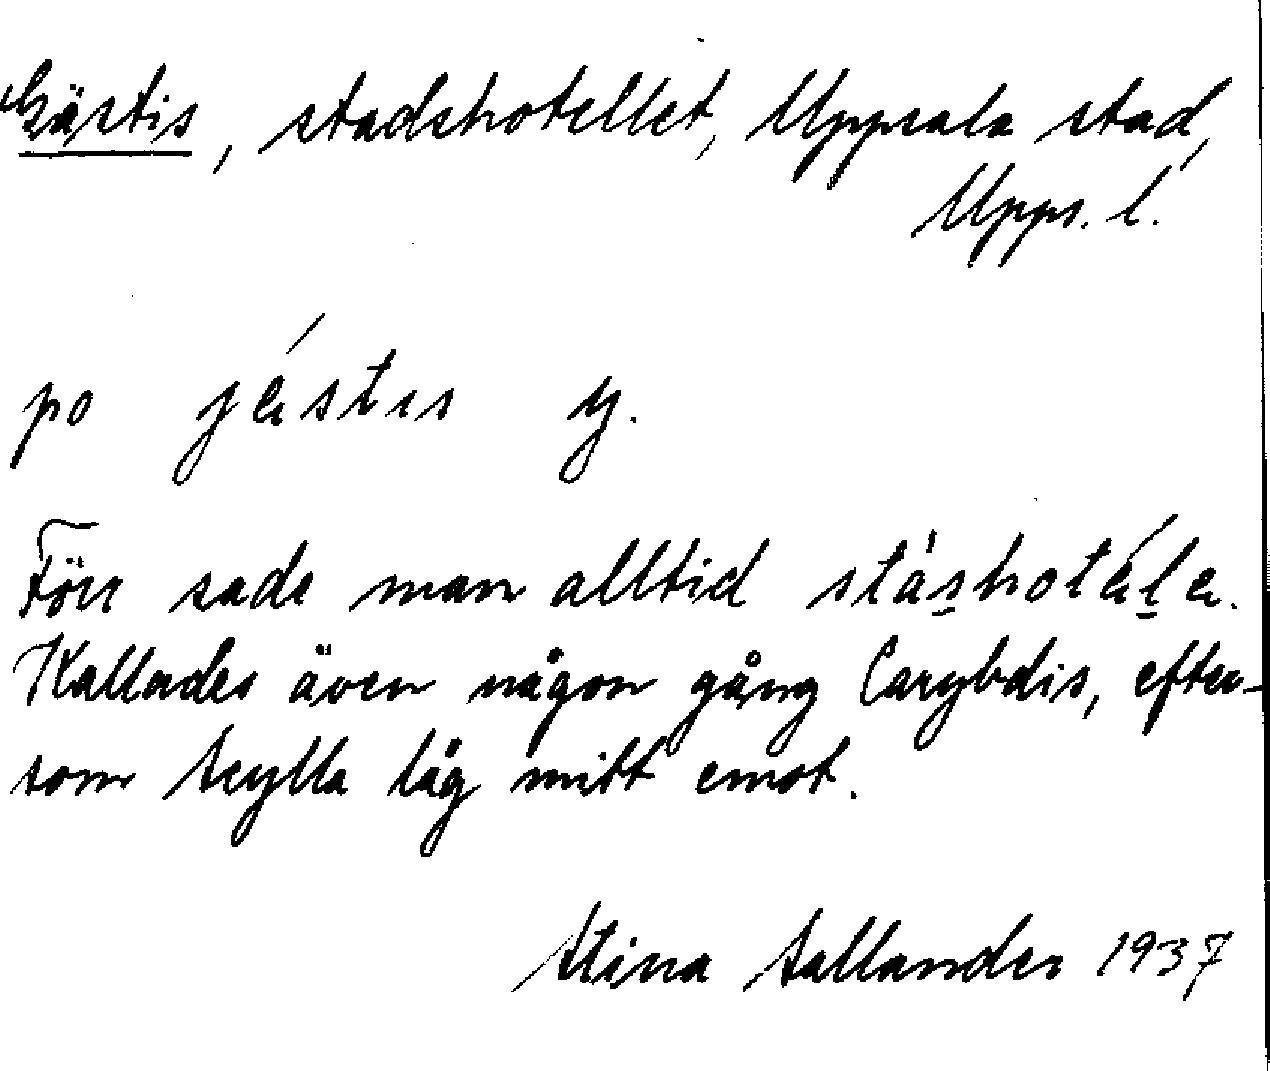 Gästis, stadshotellet, Uppsala stad,
Upps. l.
po jä́stɩs y.
Förr sade man alltid stá̱shotä́ḻä.
Kallades även någon gång Carybdis, efter-
som Scylla låg mitt emot.
Stina Sallander 1937